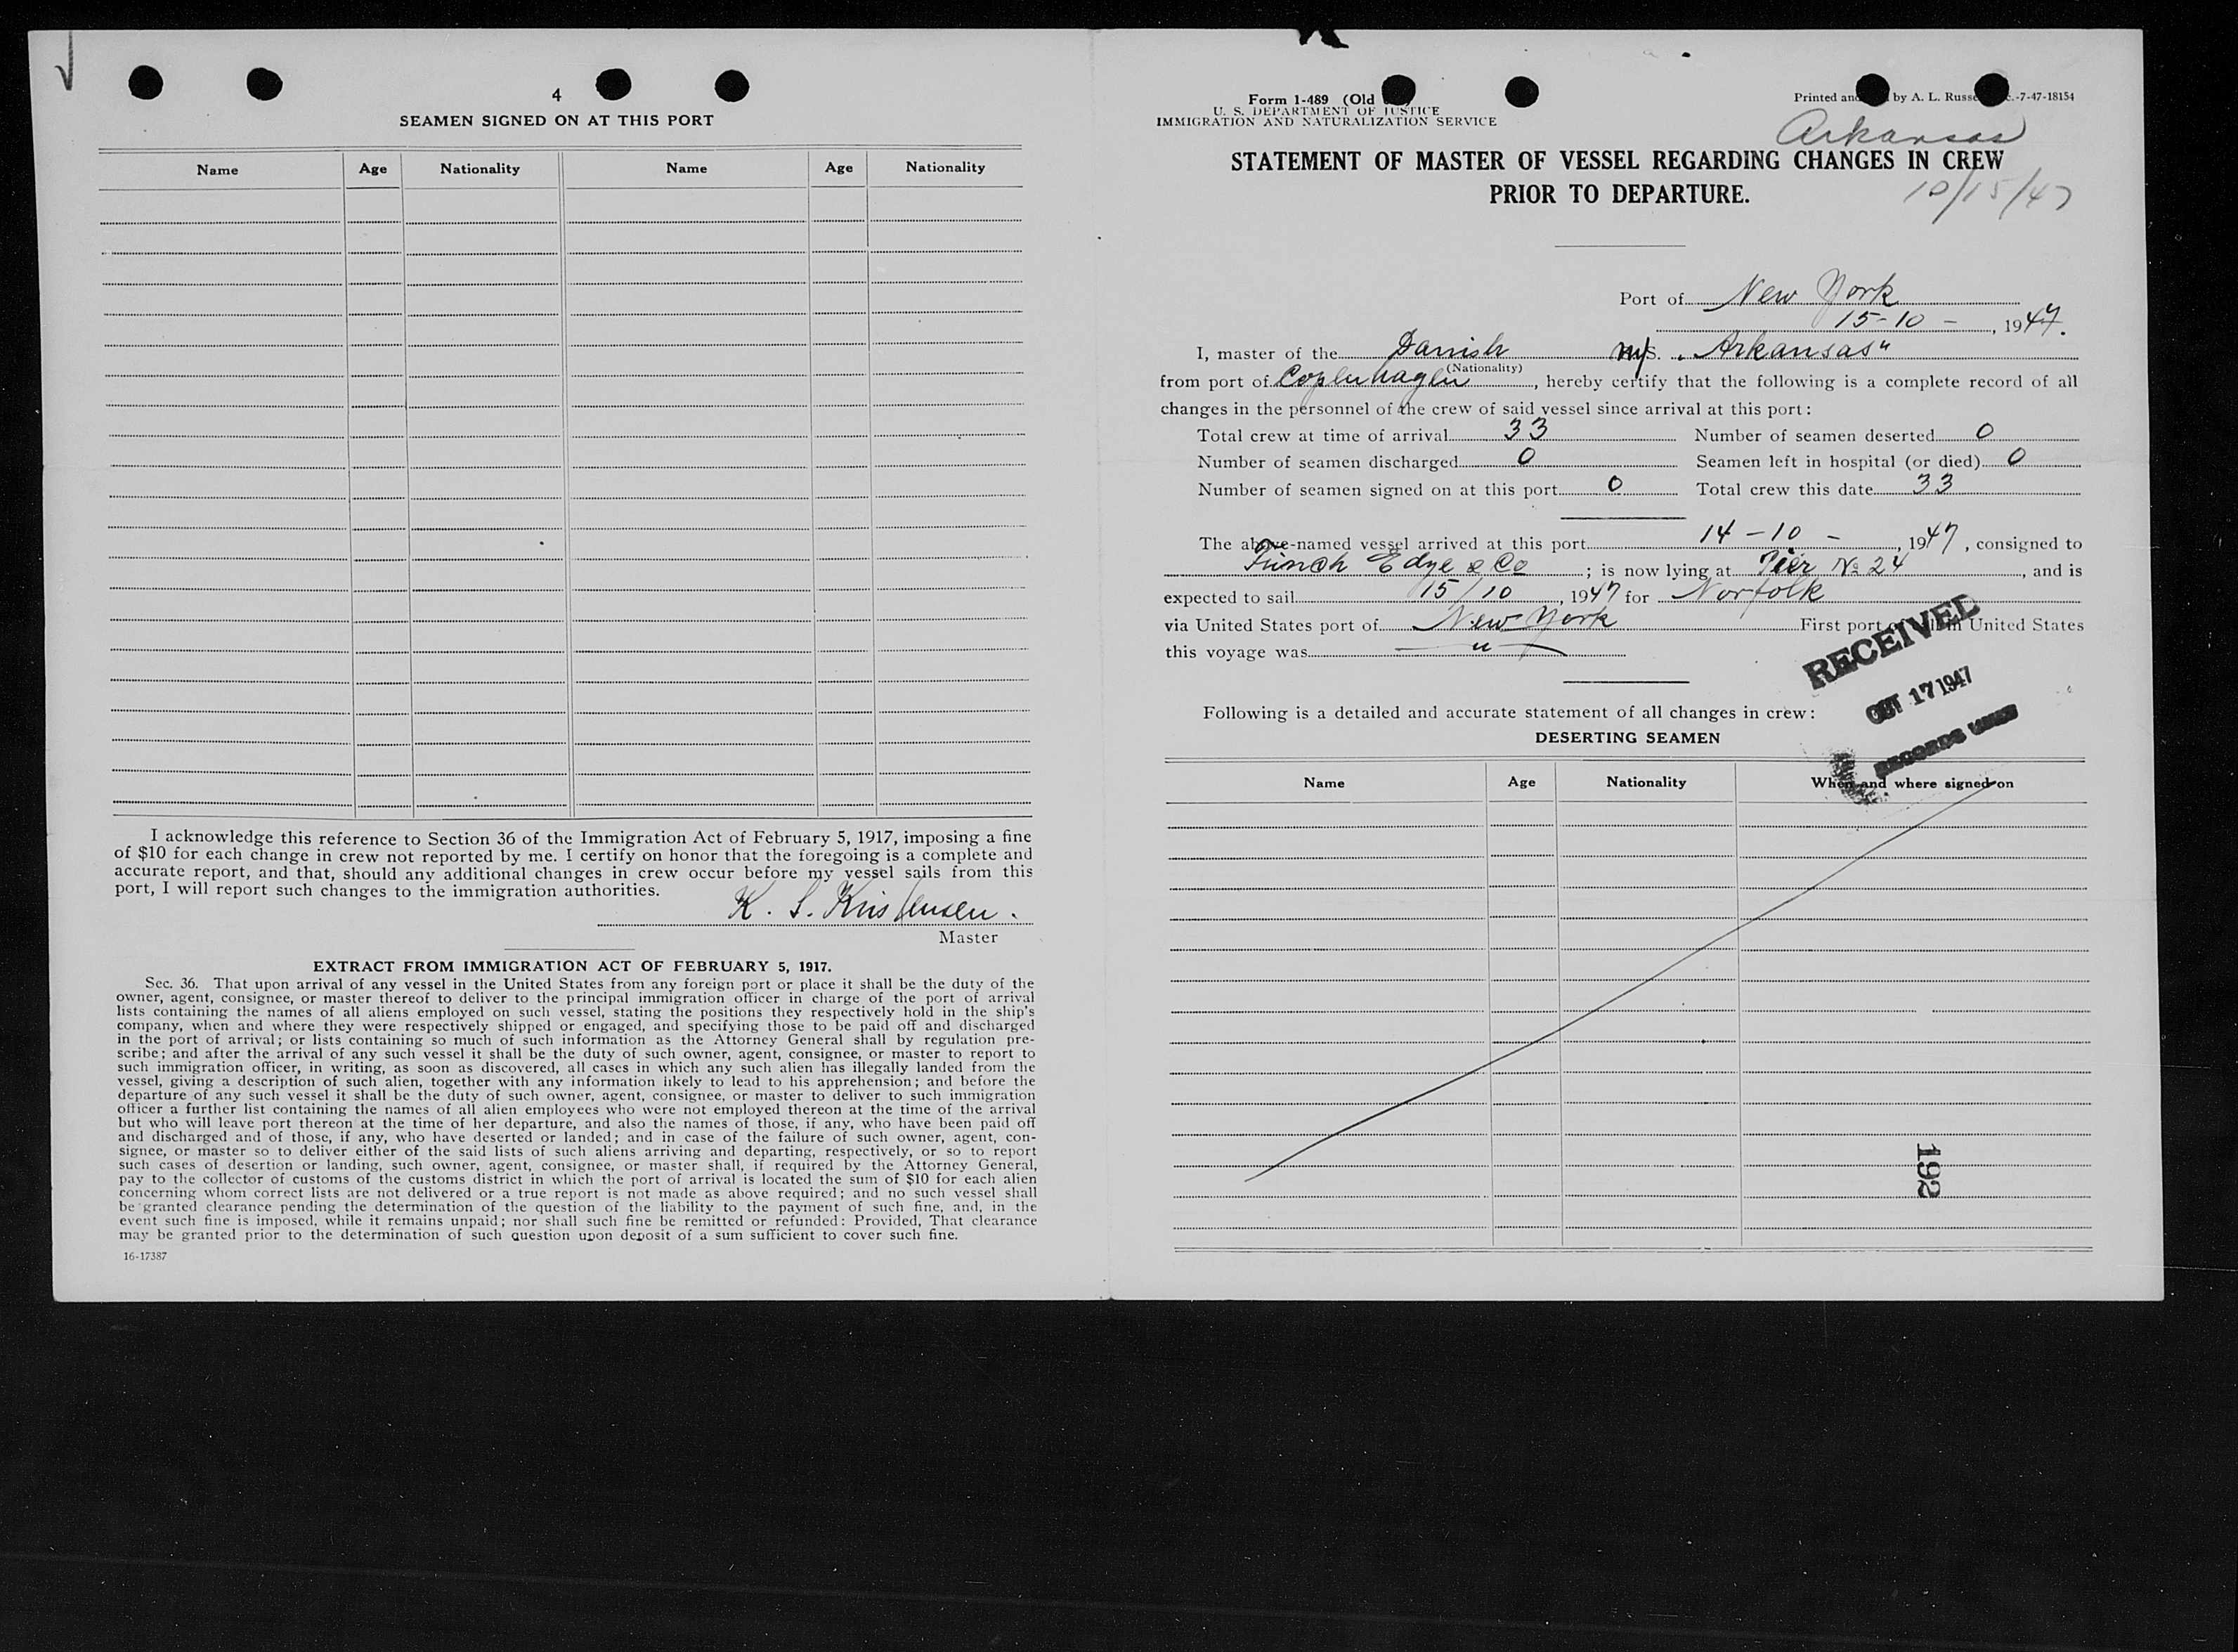 4
SEAMEN SIGNED ON AT THIS PORT
Name Age Nationality Name Age Nationality
I acknowledge this reference to Section 36 of the Immigration Act of February 5, 1917, imposing a fine
of $10 for each change in crew not reported by me. I certify on honor that the foregoing is a complete and
accurate report, and that, should any additional changes in crew occur before my vessel sails from this
port, I will report such changes to the immigration authorities.
K. S. Kristensen.
Master
EXTRACT FROM IMMIGRATION ACT OF FEBRUARY 5, 1917.
Sec. 36. That upon arrival of any vessel in the United States from any foreign port or place it shall be the duty of the
owner, agent, consignee, or master thereof to deliver to the principal immigration officer in charge of the port of arrival
lists containing the names of all aliens employed on such vessel, stating the positions they respectively hold in the ship's
company, when and where they were respectively shipped or engaged, and specifying those to be paid off and discharged
in the port of arrival; or lists containing so much of such information as the Attorney General shall by regulation pre-
scribe; and after the arrival of any such vessel it shall be the duty of such owner, agent, consignee, or master to report to
such immigration officer, in writing, as soon as discovered, all cases in which any such alien has illegally landed from the
vessel, giving a description of such alien, together with any information likely to lead to his apprehension; and before the
departure of any such vessel it shall be the duty of such owner, agent, consignee, or master to deliver to such immigration
officer a further list containing the names of all alien employees who were not employed thereon at the time of the arrival
but who will leave port thereon at the time of her departure, and also the names of those, if any, who have been paid off
and discharged and of those, if any, who have deserted or landed; and in case of the failure of such owner, agent, con-
signee, or master so to deliver either of the said lists of such aliens arriving and departing, respectively, or so to report
such cases of desertion or landing, such owner, agent, consignee, or master shall, if required by the Attorney General,
pay to the collector of customs of the customs district in which the port of arrival is located the sum of $10 for each alien
concerning whom correct lists are not delivered or a true report is not made as above required; and no such vessel shall
be granted clearance pending the determination of the question of the liability to the payment of such fine, and, in the
event such fine is imposed, while it remains unpaid; nor shall such fine be remitted or refunded: Provided, That clearance
may be granted prior to the determination of such question upon deposit of a sum sufficient to cover such fine.
16-17387
Form 1-489 (Old
U. S. DEPARTMENT OF JUSTICE
IMMIGRATION AND NATURALIZATION SERVICE
Printed and by A. L. Russ -7-47-18154
Arkansas
STATEMENT OF MASTER OF VESSEL REGARDING CHANGES IN CREW
PRIOR TO DEPARTURE.
10/15/47
Port of New York
15-10 - , 1947.
I, master of the Danish m/s. „Arkansas"
(Nationality)
from port of Copenhagen, hereby certify that the following is a complete record of all
changes in the personnel of the crew of said vessel since arrival at this port:
Total crew at time of arrival 33 Number of seamen deserted 0
Number of seamen discharged 0 Seamen left in hospital (or died) 0
Number of seamen signed on at this port 0 Total crew this date 33
The above-named vessel arrived at this port 14-10 - , 1947, consigned to
Funch Edye & Co ; is now lying at Pier № 24, and is
expected to sail 15/10, 1947 for Norfolk
via United States port of New York First port of call in United States
this voyage was "
RECEIVED
OCT 17 1947
RECORDS
Following is a detailed and accurate statement of all changes in crew:
DESERTING SEAMEN
Name Age Nationality When and where signed on
192